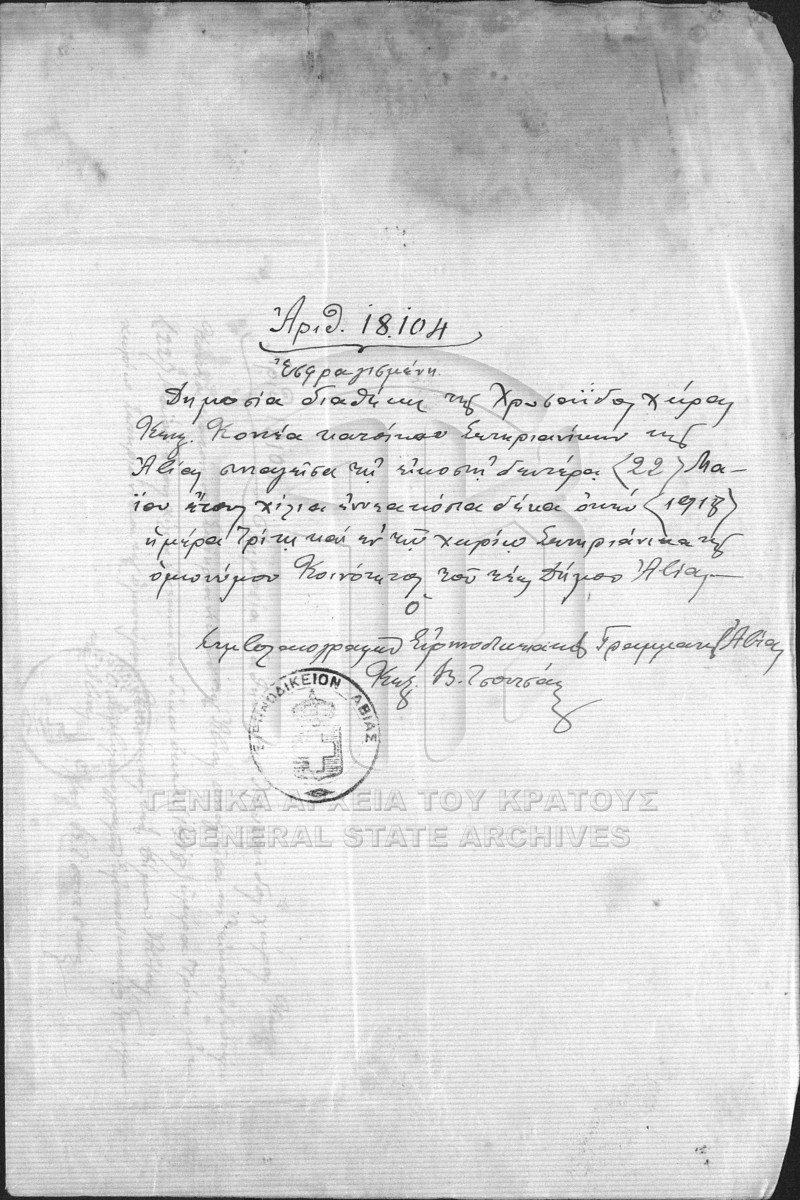 Ἀριθ. 18.104
Ἐσφραγισμένη.
Δημοσία διαθήκη τῆς Χρυσοΐδος χήρας
Κων. Κονέα κατοίκου Σωτηριανίκων τῆς
Ἀβίας συναγεῖσα τῇ εἰκοστῇ δευτέρᾳ (22) Μα-
ΐου ἔτους χίλια ἐννεακόσια δέκα ὀκτώ (1918)
ἡμέρα Τρίτη καὶ ἐν τῷ χωρίῳ Σωτηριάνικα τῆς
ὁμωνύμου Κοινότητος τοῦ τέως Δήμου Ἀβίας
Ὁ
Συμβολαιογραφῶν Εἰρηνοδικειακὸς Γραμματεὺς Ἀβίας
Β.
ΕΙΡΗΝΟΔΙΚΕΙΟΝ ΑΒΙΑΣ
ΓΕΝΙΚΑ ΑΡΧΕΙΑ ΤΟΥ ΚΡΑΤΟΥΣ
GENERAL STATE ARCHIVES